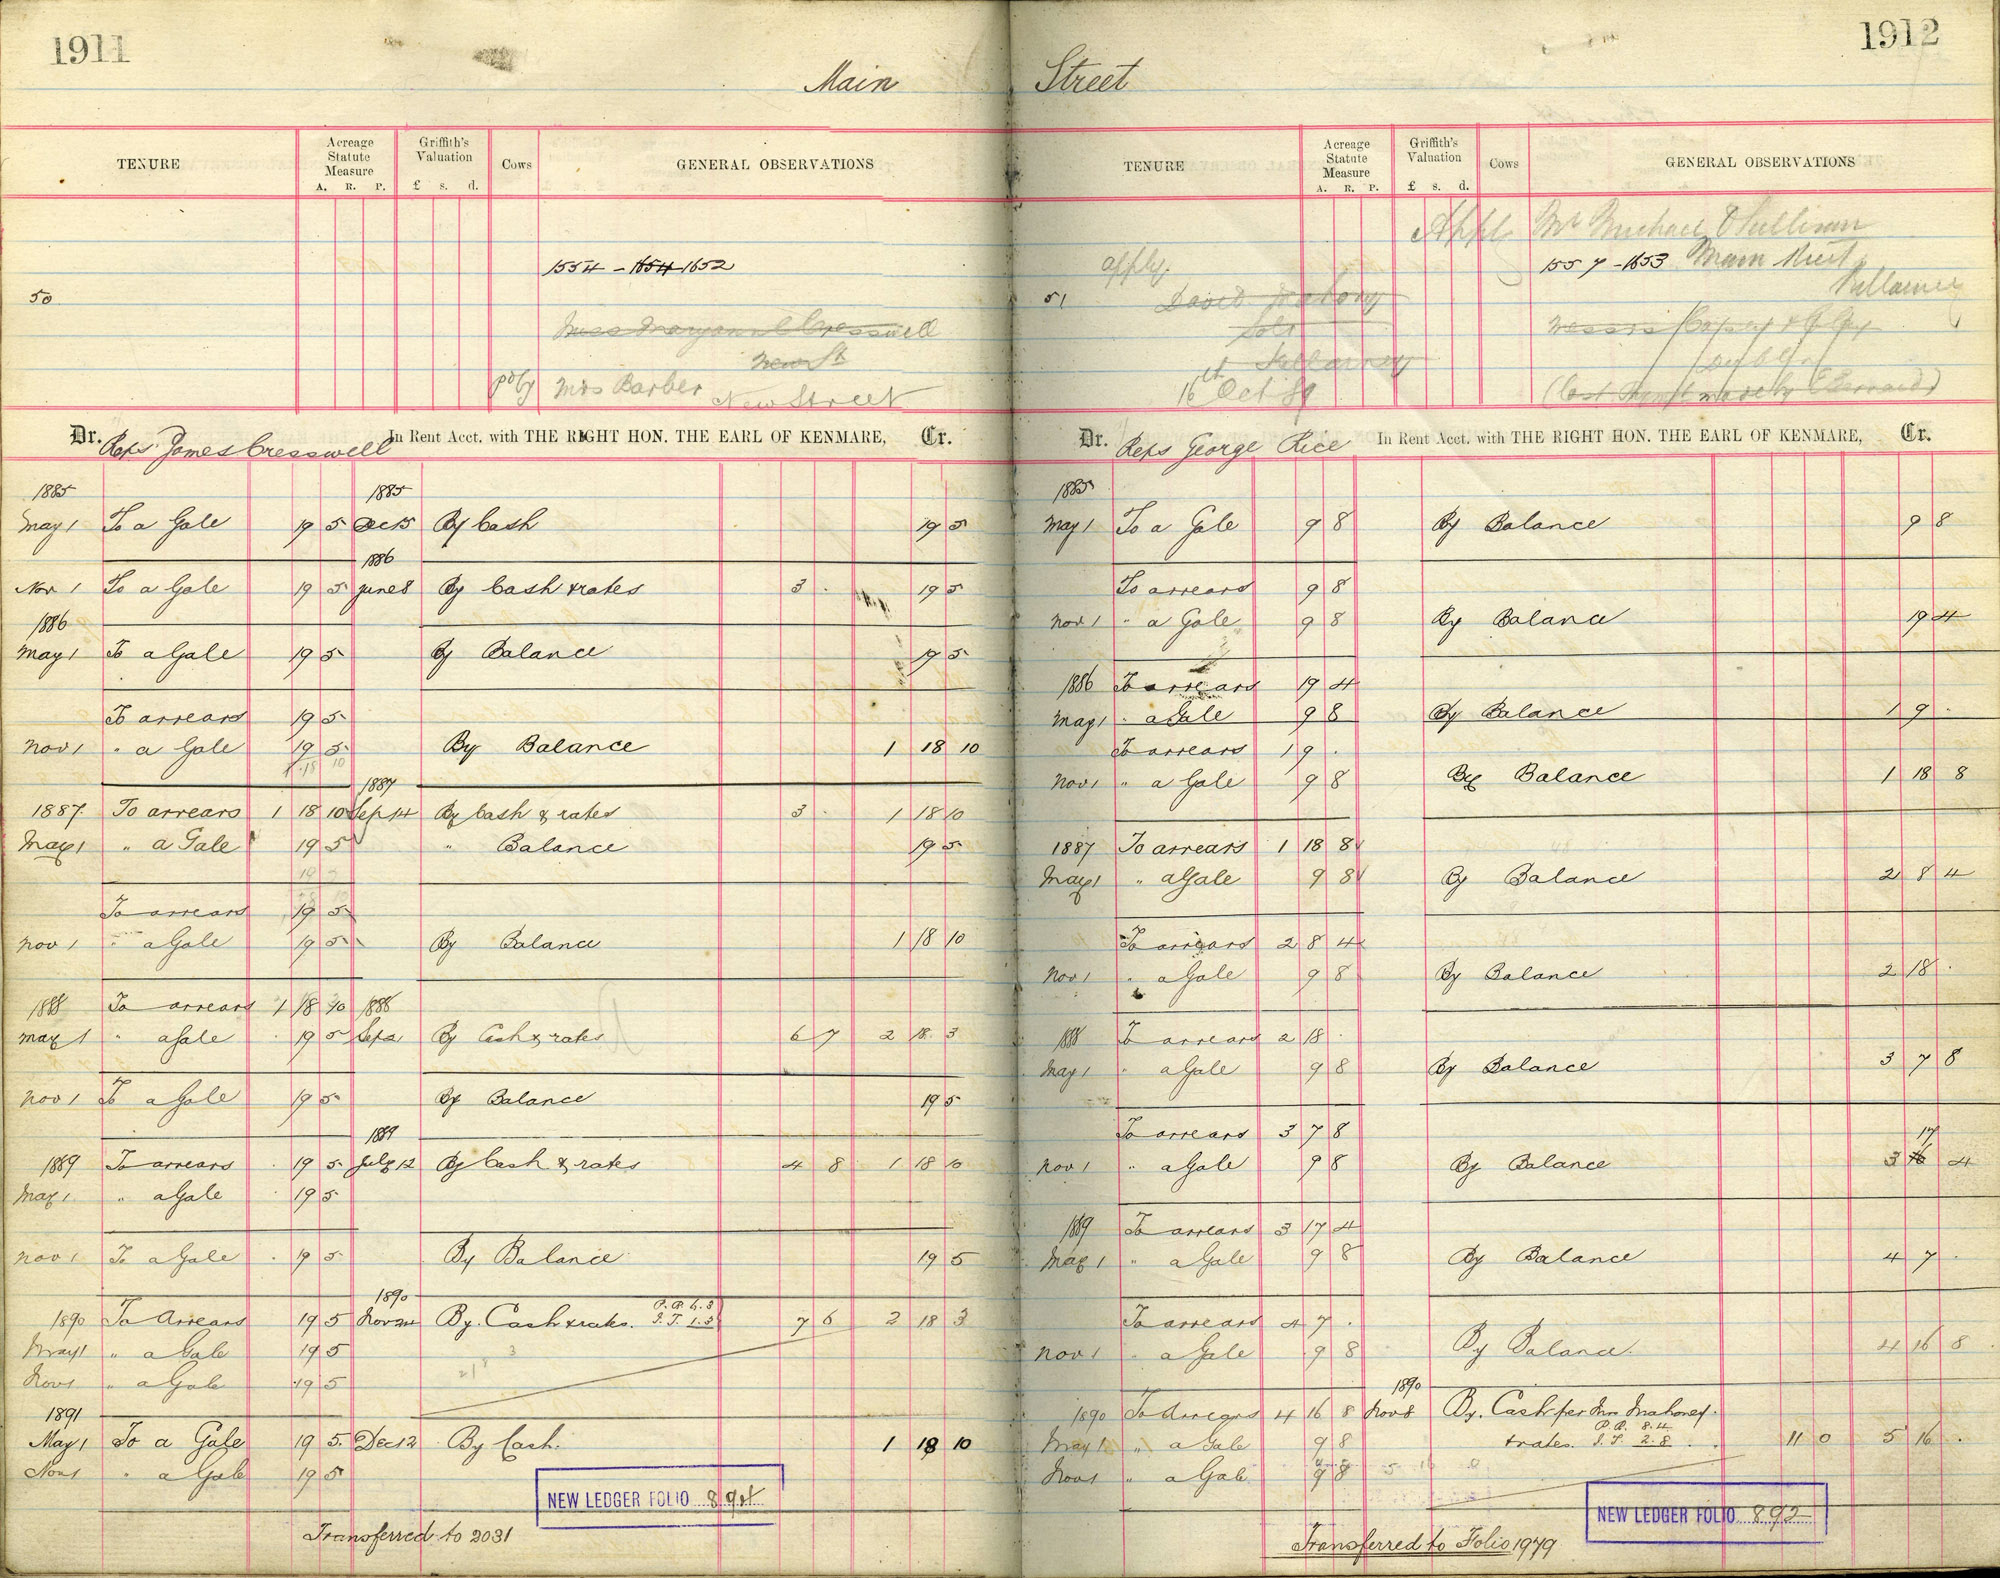 1911
Main
TENURE
Acreage Statute Measure
A. R. P.
Griffith's Valuation
£ s. d.
Cows
GENERAL OBSERVATIONS
1554 - 1654 - 1652
50
Miss Maryanne Cresswell
New St
pd by Mrs Barber New Street
Dr. Reps James Cresswell In Rent Acct. with THE RIGHT HON. THE EARL OF KENMARE, Cr.
1885 1885
May 1 To a Gale 19 5 Dec 15 By Cash 19 5
1886
Nov 1 To a Gale 19 5 June 8 By Cash & rates 3 . 19 5
1886
May 1 To a Gale 19 5 By Balance 19 5
To arrears 19 5
Nov 1 " a Gale 19 5 By Balance 1 18 10
1 18 10
1887
1887 To arrears 1 18 10 Sep 14 By Cash & rates 3 . 1 18 10
May 1 " a Gale 19 5 " Balance 19 5
To arrears 19 5
Nov 1 " a Gale 19 5 By Balance 1 18 10
1888 To arrears 1 18 10 1888
May 1 " a Gale 19 5 Sep 21 By Cash & rates 6 7 2 18 3
Nov 1 To a Gale 19 5 By Balance 19 5
1889
1889 To arrears 19 5 July 12 By Cash & rates 4 8 1 18 10
May 1 " a Gale 19 5
Nov 1 To a Gale 19 5 By Balance 19 5
1890
1890 To Arrears 19 5 Nov 24 By Cash & rates. P.R. 6.3 7 6 2 18 3
I.T. 1.3
May 1 " a Gale 19 5
Nov 1 " a Gale 19 5
1891
May 1 To a Gale 19 5 Dec 12 By Cash. 1 18 10
Nov 1 " a Gale 19 5
NEW LEDGER FOLIO 891
Transferred to 2031
1912
Street
TENURE
Acreage Statute Measure
A. R. P.
Griffith's Valuation
£ s. d.
Cows
GENERAL OBSERVATIONS
Appl Mr Michael O'Sullivan
apply 1557 - 1653 Main Street
Killarney
51 David Mahony
Solr
Killarney
16th Oct 89
Dublin
Dr. Reps George Rice In Rent Acct. with THE RIGHT HON. THE EARL OF KENMARE, Cr.
1885
May 1 To a Gale 9 8 By Balance 9 8
To arrears 9 8
Nov 1 " a Gale 9 8 By Balance 19 4
1886 To arrears 19 4
May 1 " a Gale 9 8 By Balance 1 9 .
To arrears 1 9 .
Nov 1 " a Gale 9 8 By Balance 1 18 8
1887 To arrears 1 18 8
May 1 " a Gale 9 8 By Balance 2 8 4
To arrears 2 8 4
Nov 1 " a Gale 9 8 By Balance 2 18 .
1888 To arrears 2 18 .
May 1 " a Gale 9 8 By Balance 3 7 8
To arrears 3 7 8
17
Nov 1 " a Gale 9 8 By Balance 3 16 4
1889 To arrears 3 17 4
May 1 " a Gale 9 8 By Balance 4 7 .
To arrears 4 7 .
Nov 1 " a Gale 9 8 By Balance. 4 16 8
1890
1890 To Arrears 4 16 8 Nov 8 By. Cash per Mr Mahoney.
May 1 " a Gale 9 8 & rates. P.R. 8.4 11 0 5 16 .
I.T. 2.8
Nov 1 " a Gale 9 8
NEW LEDGER FOLIO 892
Transferred to Folio 1979